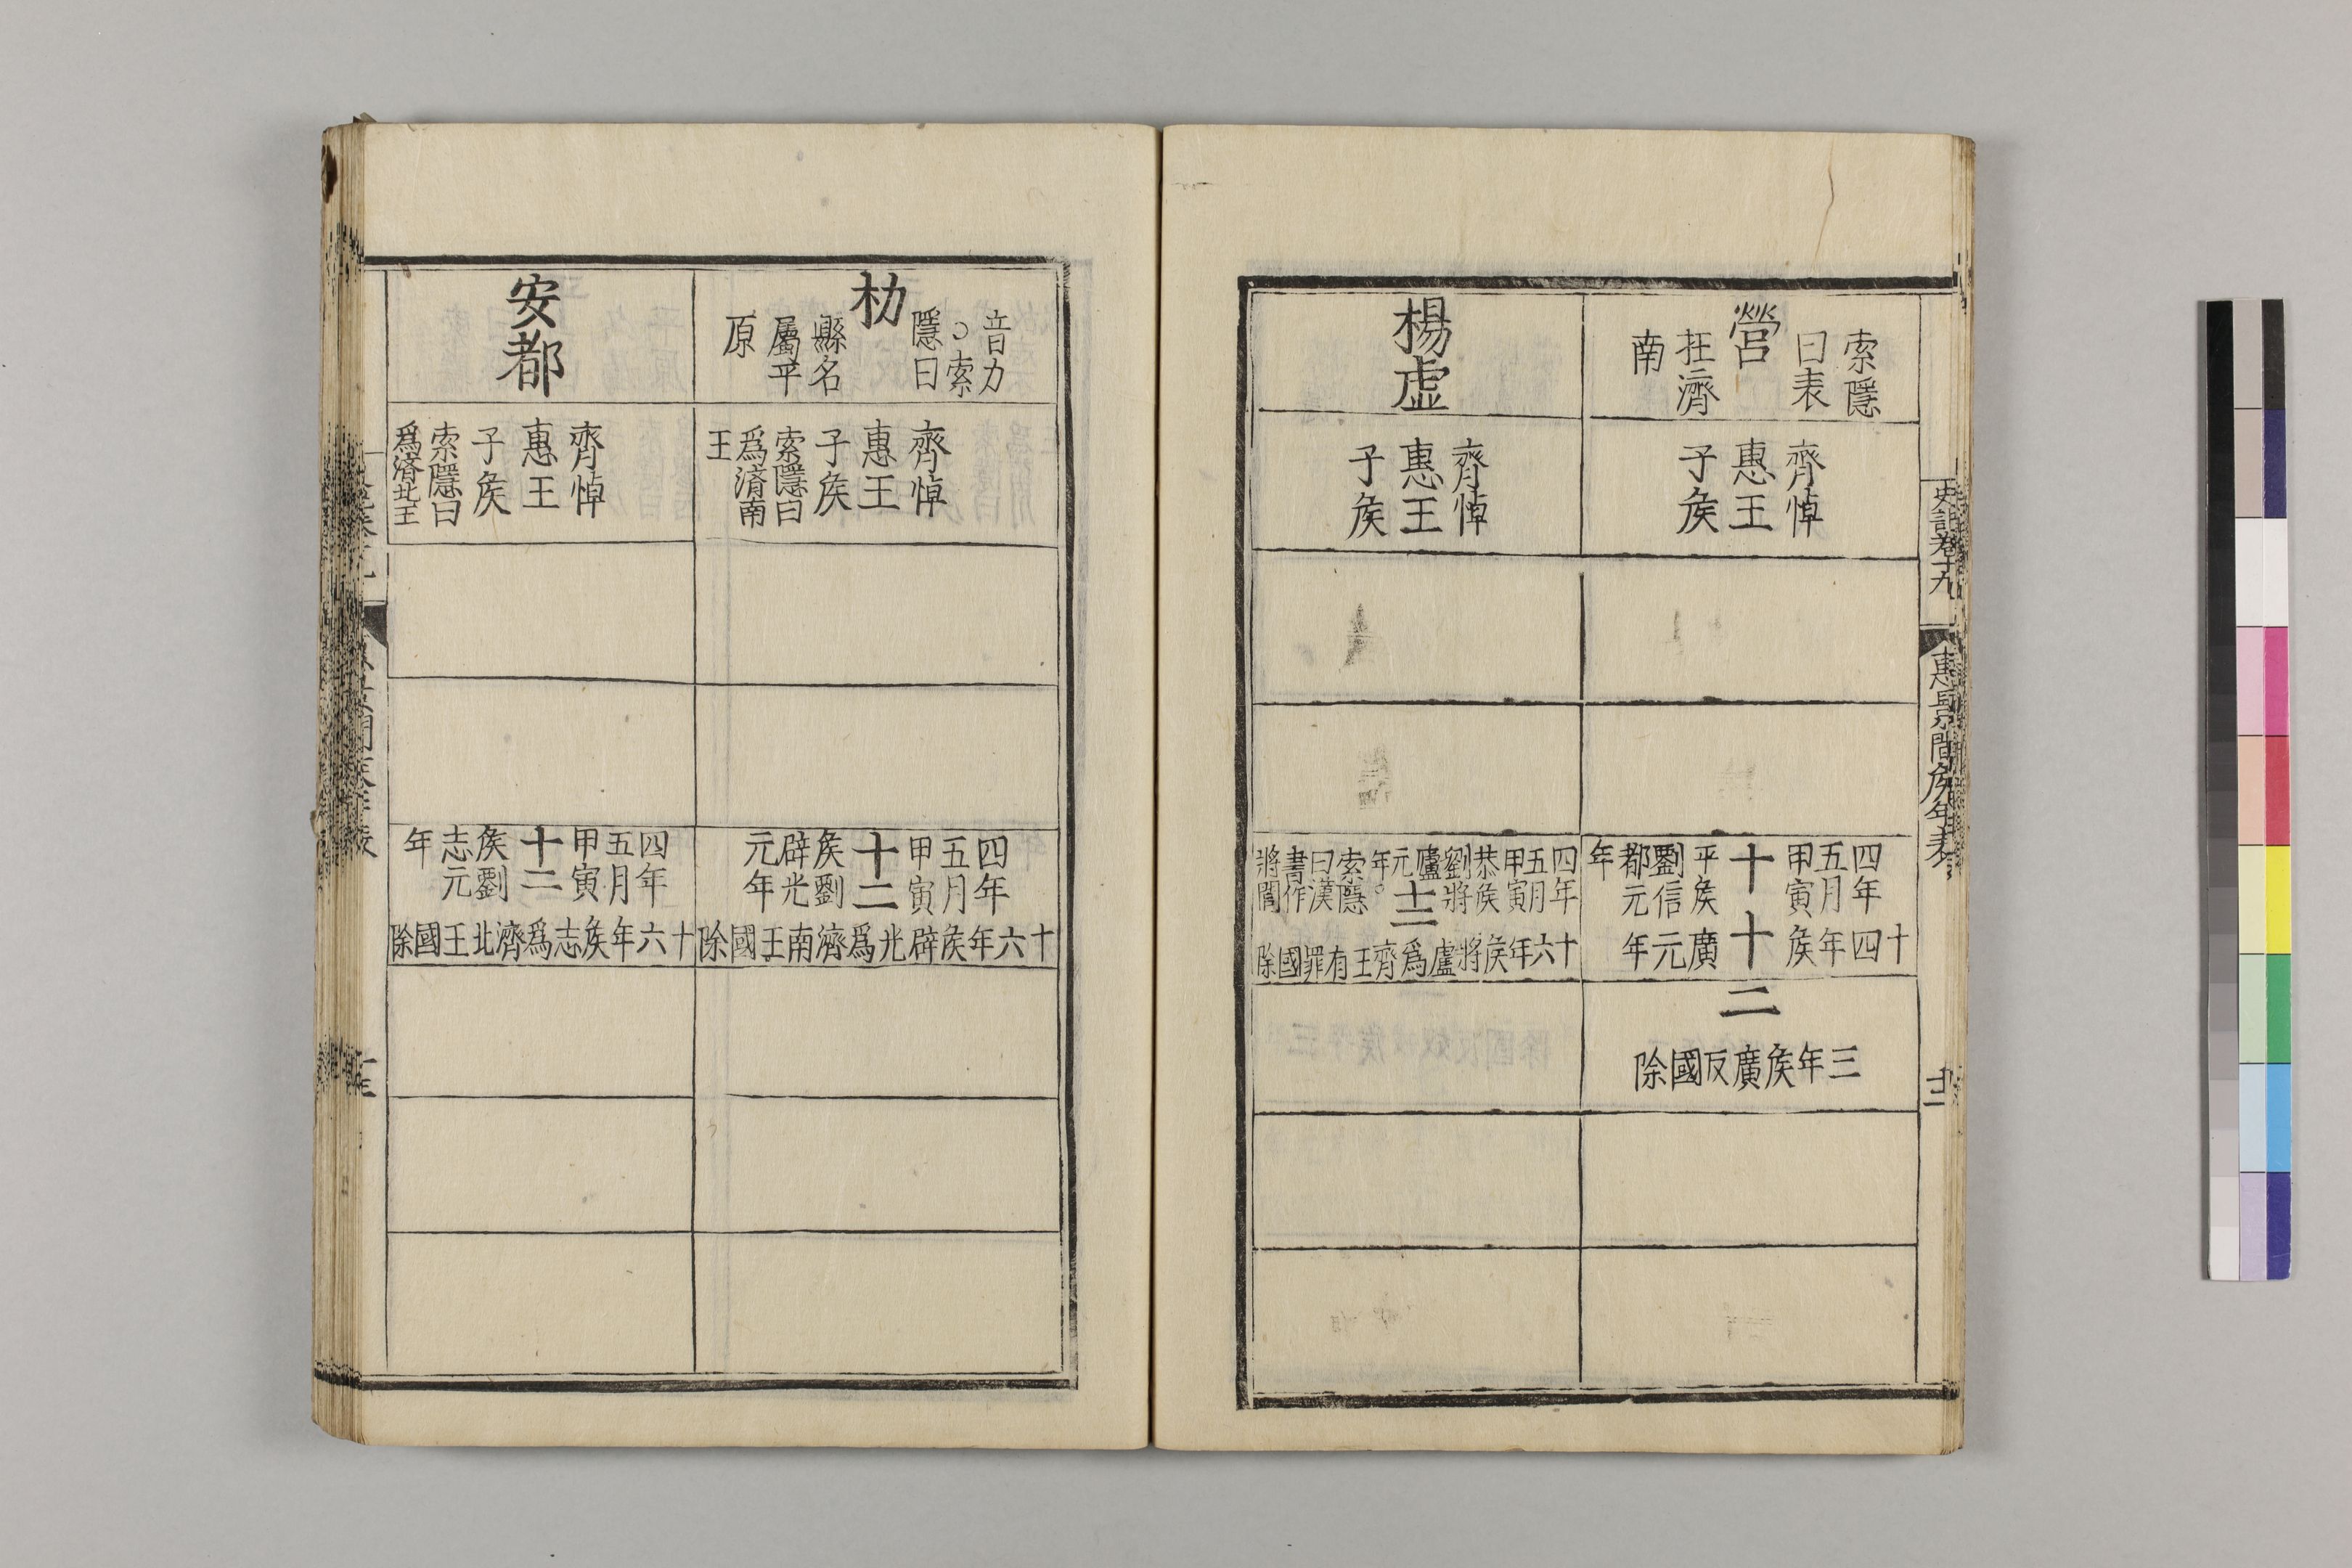 史記卷十九
惠景間侯年表
十二
營
索隱
曰表
在濟
南
齊悼
惠王
子侯
四年
五月
甲寅
平侯
劉信
都元
年
十
十四
年
侯
廣
元
年
十
二
三年侯廣反國除
楊虛
齊悼
惠王
子侯
四年
五月
甲寅
恭侯
劉將
廬
元
年。
索隱
曰漢
書作
將閭
十二
十六年侯將廬爲齊王有罪國除
朸
音力
○索
隱曰
縣名
屬平
原
齊悼
惠王
子侯
索隱曰
爲濟南
王
四年
五月
甲寅
十二
侯劉
辟光
元年
十六年侯辟光爲濟南王國除
安都
齊悼
惠王
子侯
索隱曰
爲濟北王
四年
五月
甲寅
十二
侯劉
志元
年
十六年侯志爲濟北王國除